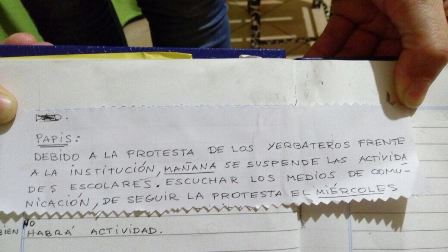 PAPIS:
DEBIDO A LA PROTESTA DE LOS YERBATEROS FRENTE
A LA INSTITUCIÓN, MAÑANA SE SUSPENDE LAS ACTIVIDA
DES ESCOLARES. ESCUCHAR LOS MEDIOS DE COMU-
NICACIÓN, DE SEGUIR LA PROTESTA EL MIÉRCOLES
NO
HABRÁ ACTIVIDAD.